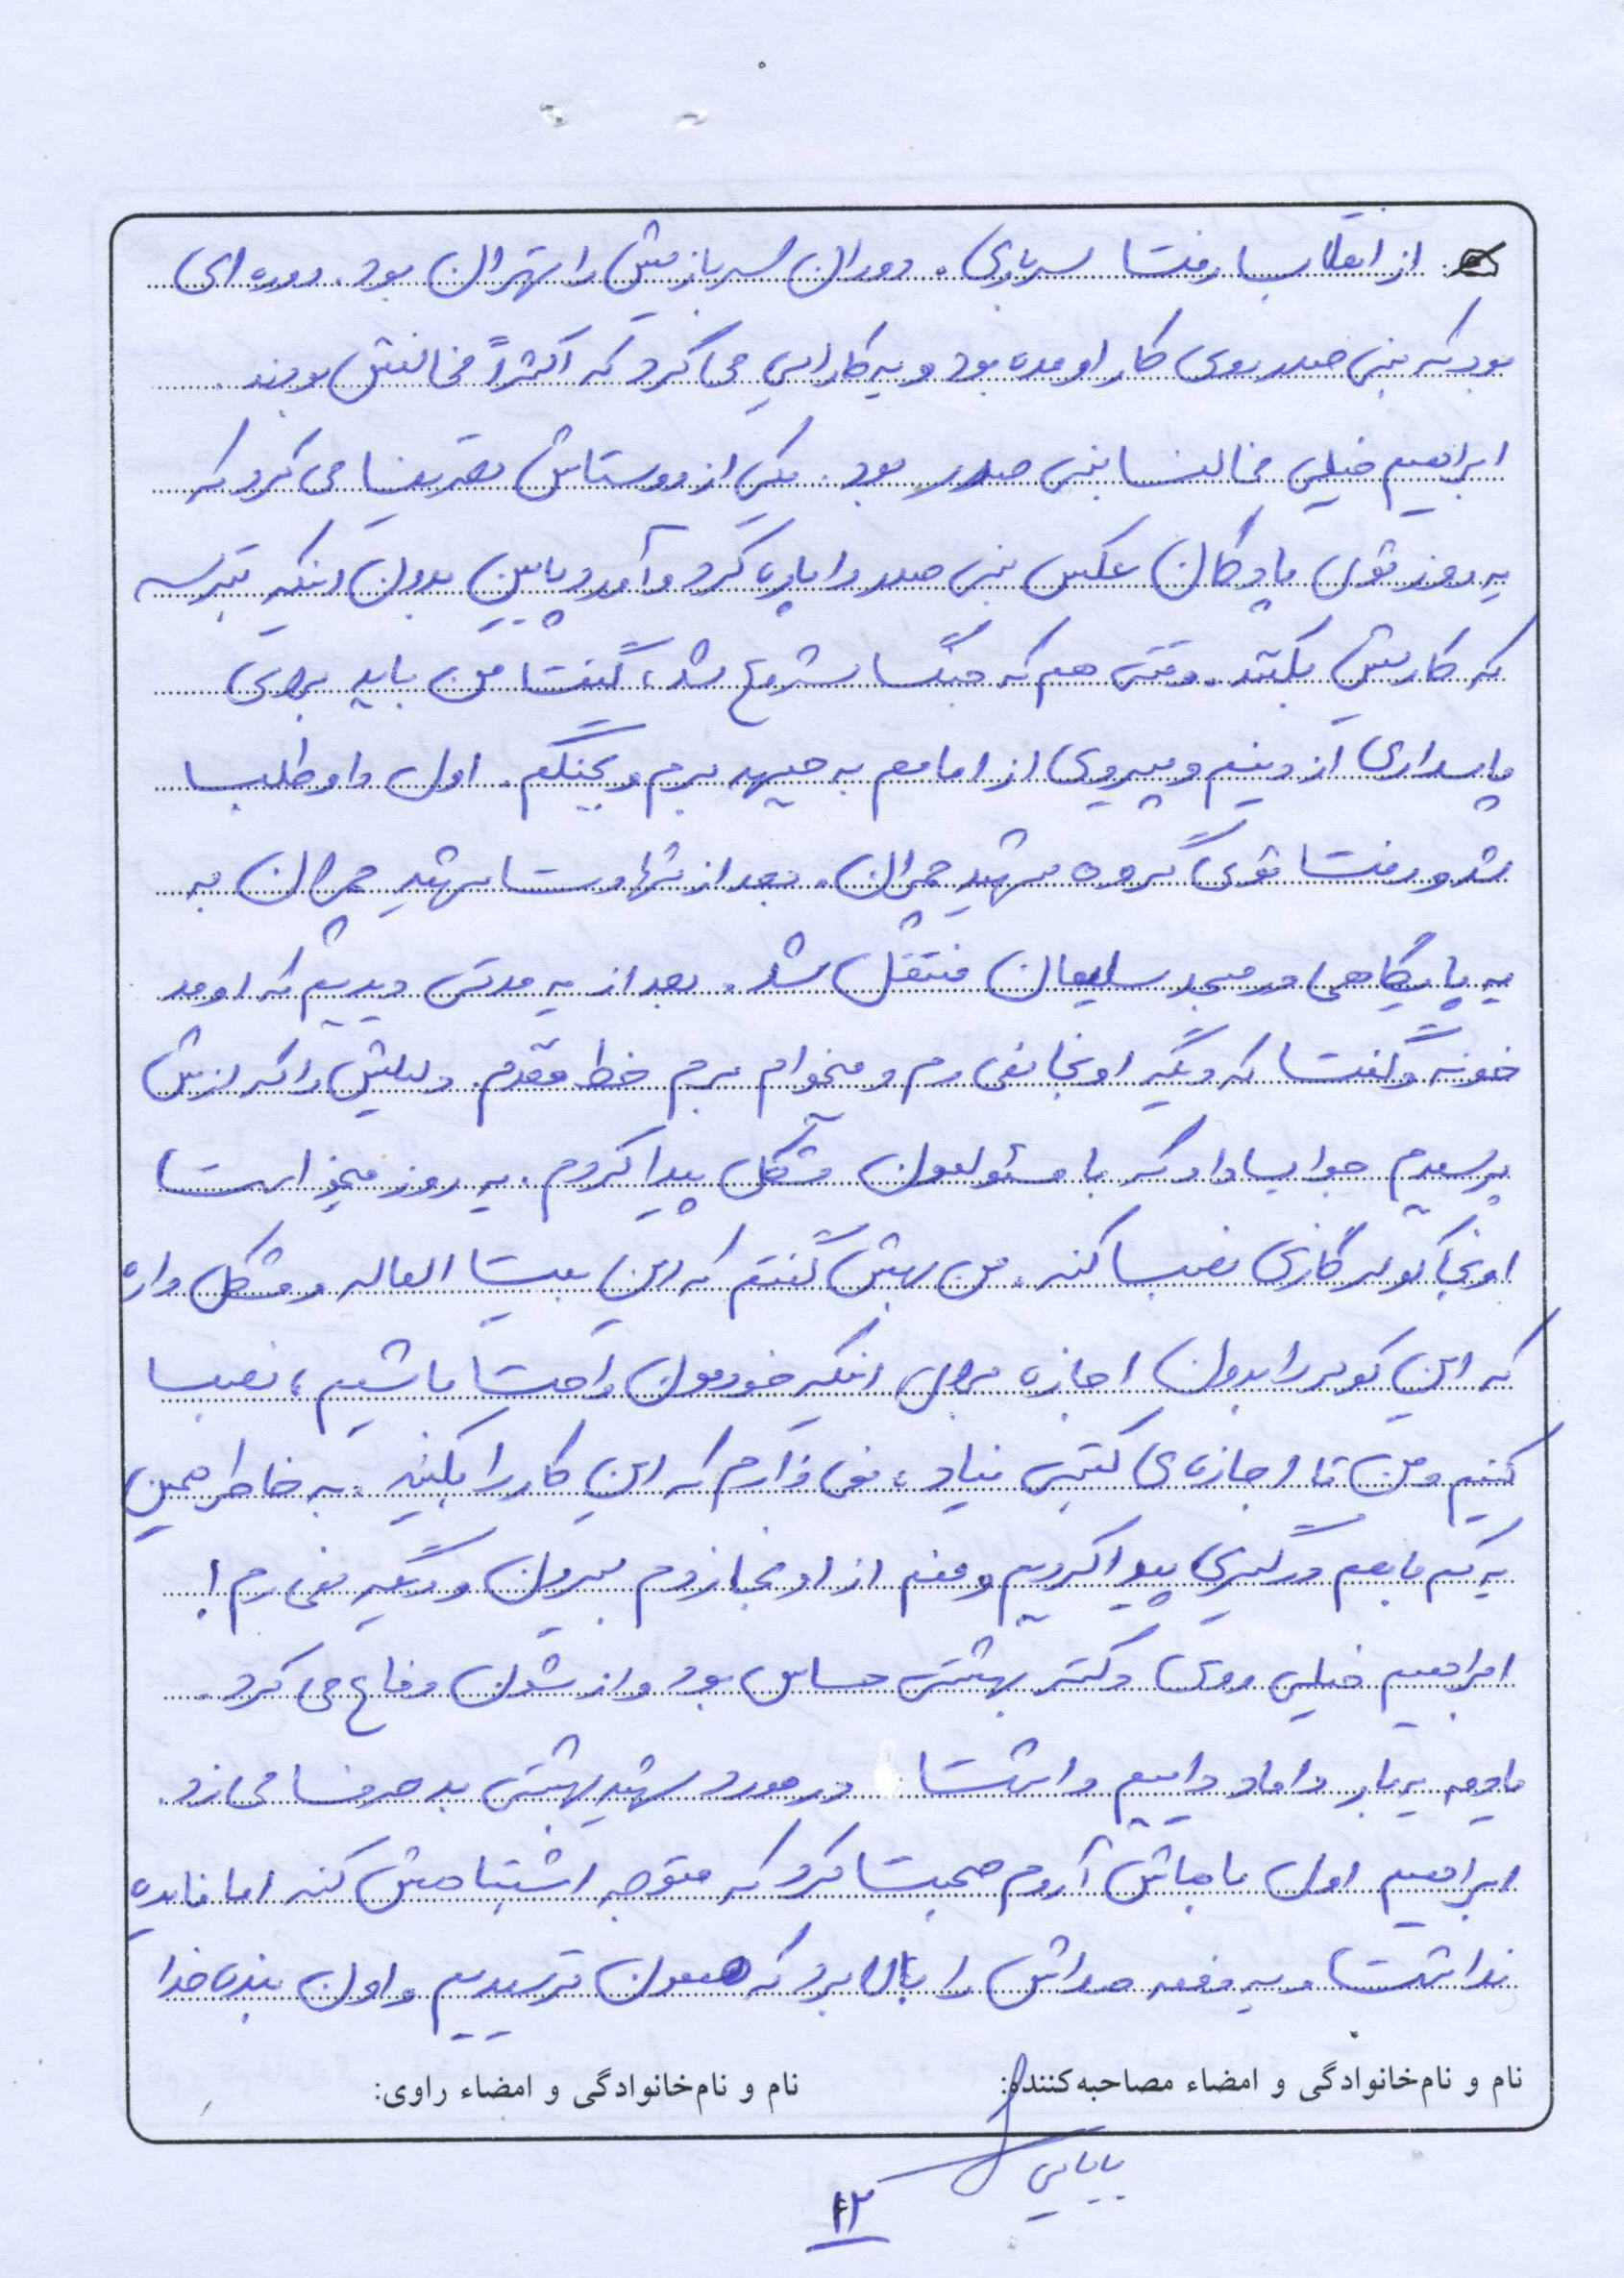 از انقلاب رفت سربازی. دوران سربازیش را تهران بود. دوره ای
بود که بنی صدر روی کار اومده بود و یه کارایی می کرد که اکثراً مخالفش بودند.
ابراهیم خیلی مخالف بنی صدر بود. یکی از دوستاش تعریف می کرد که
یه روز توی پادگان عکس بنی صدر را پاره کرد و آورد پایین بدون اینکه بترسه
که کاریش بکنند. وقتی هم که جنگ شروع شد، گفت من باید برای
پاسداری از دینم و پیروی از امامم به جبهه برم و بجنگم. اول داوطلب
شد و رفت توی گروه شهید چمران. بعد از شهادت شهید چمران به
یه پایگاهی در مسجد سلیمان منتقل شد. بعد از یه مدتی دیدیم که اومد
خونه و گفت که دیگه اونجا نمی رم و میخوام برم خط مقدم. دلیلش را که ازش
پرسیدم جواب داد که با مسئولمون مشکل پیدا کردم. یه روز میخواست
اونجا کولر گازی نصب کنه. من بهش گفتم که این بیت الماله و مشکل داره
که این کولر را بدون اجازه برای اینکه خودمون راحت باشیم، نصب
کنیم و من تا اجازه ی کتبی نیاد، نمی ذارم که این کار را بکنید. به خاطر همین
یه کم با هم درگیری پیدا کردیم و منم از اونجا زدم بیرون و دیگه نمی رم!
ابراهیم خیلی روی دکتر بهشتی حساس بود و ازشون دفاع می کرد.
یادمه یه بار داماد داییم داشت در مورد شهید بهشتی بد حرف می زد.
ابراهیم اول باهاش آروم صحبت کرد که متوجه اشتباهش کنه اما فایده
نداشت و یه دفعه صداش را بالا برد که هممون ترسیدیم و اون بنده خدا
نام و نام‌خانوادگی و امضاء مصاحبه‌کننده: نام و نام‌خانوادگی و امضاء راوی:
بابایی
۱۲